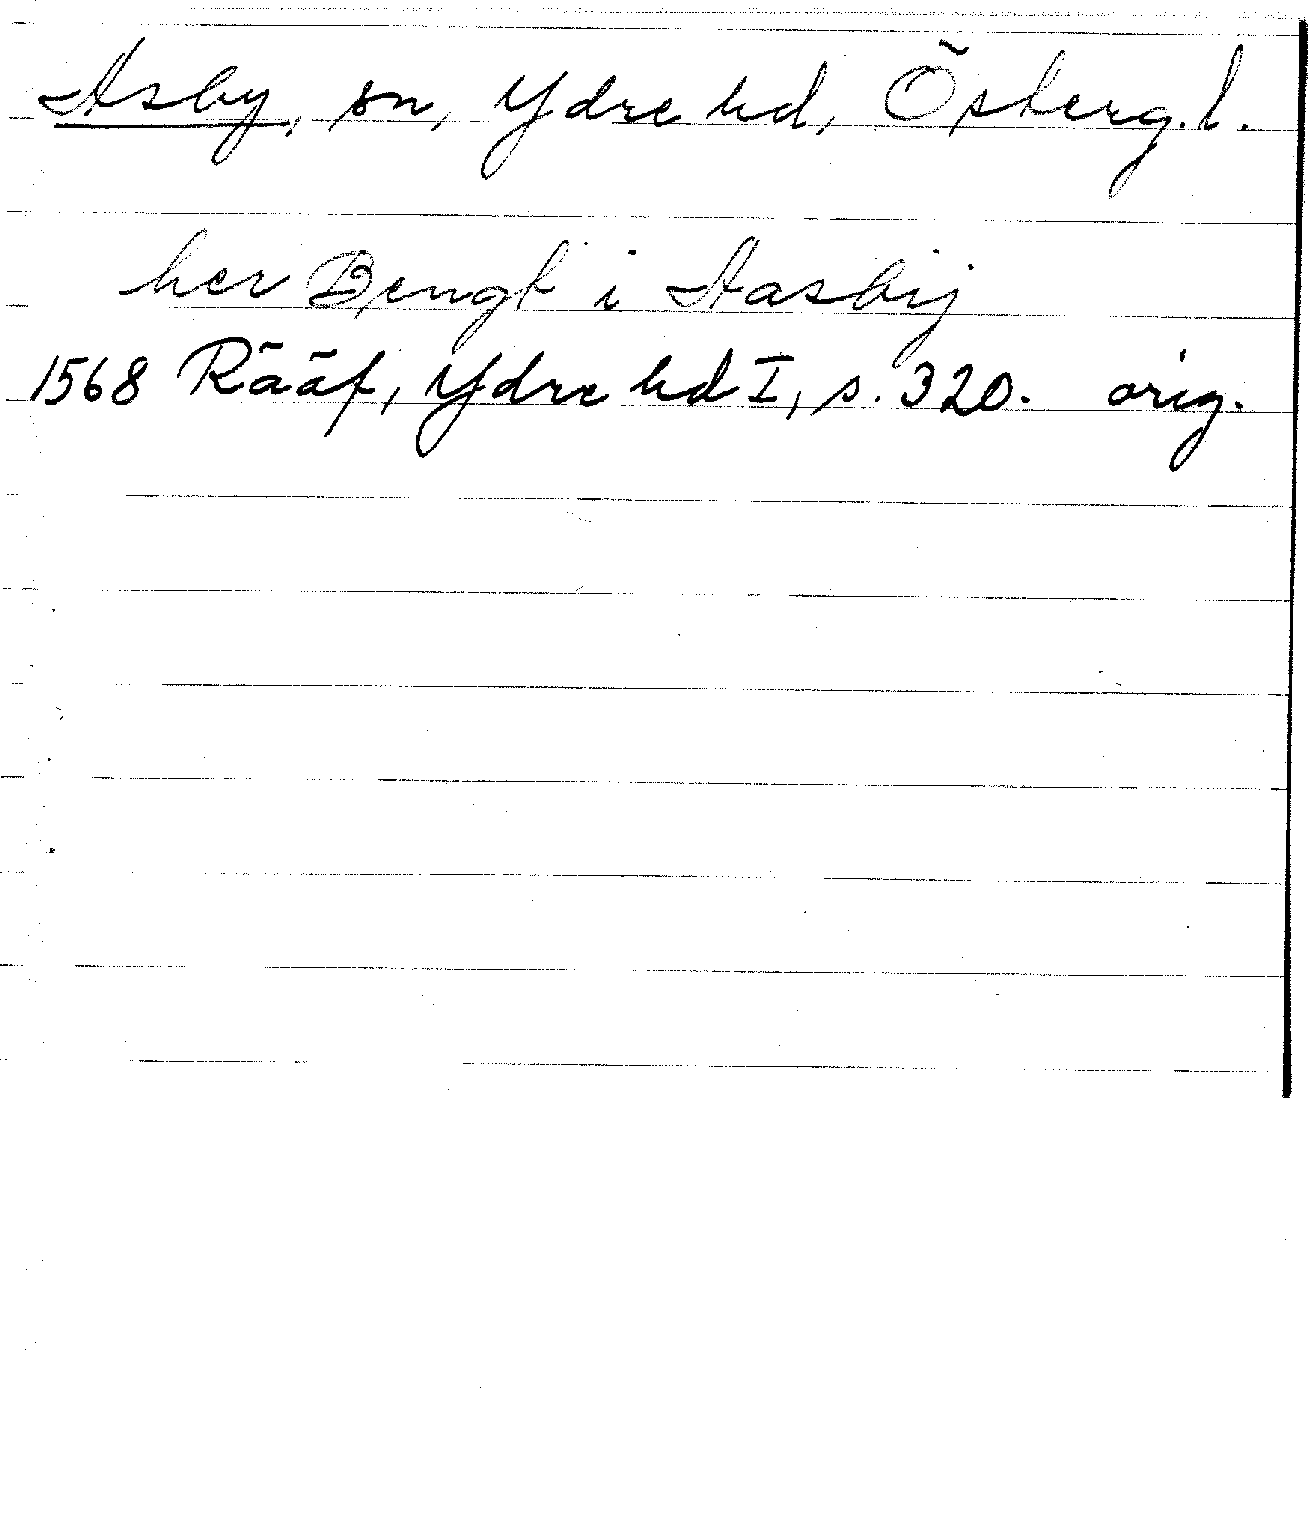 Asby, sn, Ydre hd, Österg. l.
her Bengt i Aasbij
1568 Rääf, Ydre hd I, s. 320. orig.